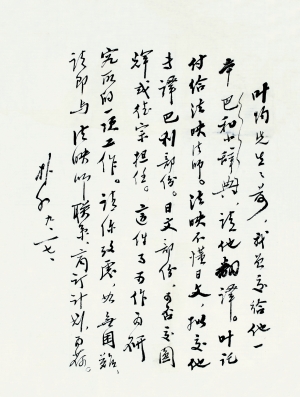 叶均先生前,我曾交给他一
本巴和小辞典请他翻译。叶託
付给法映法师。法映不懂日文,拟交他
专译巴利部份。日文部份,可否交圆
辉或宗担任。这件事可作为研
究所的一项工作。请你考虑,如无困难,
请即与法映师联系,商订计划,为荷。
朴初 九.二七.